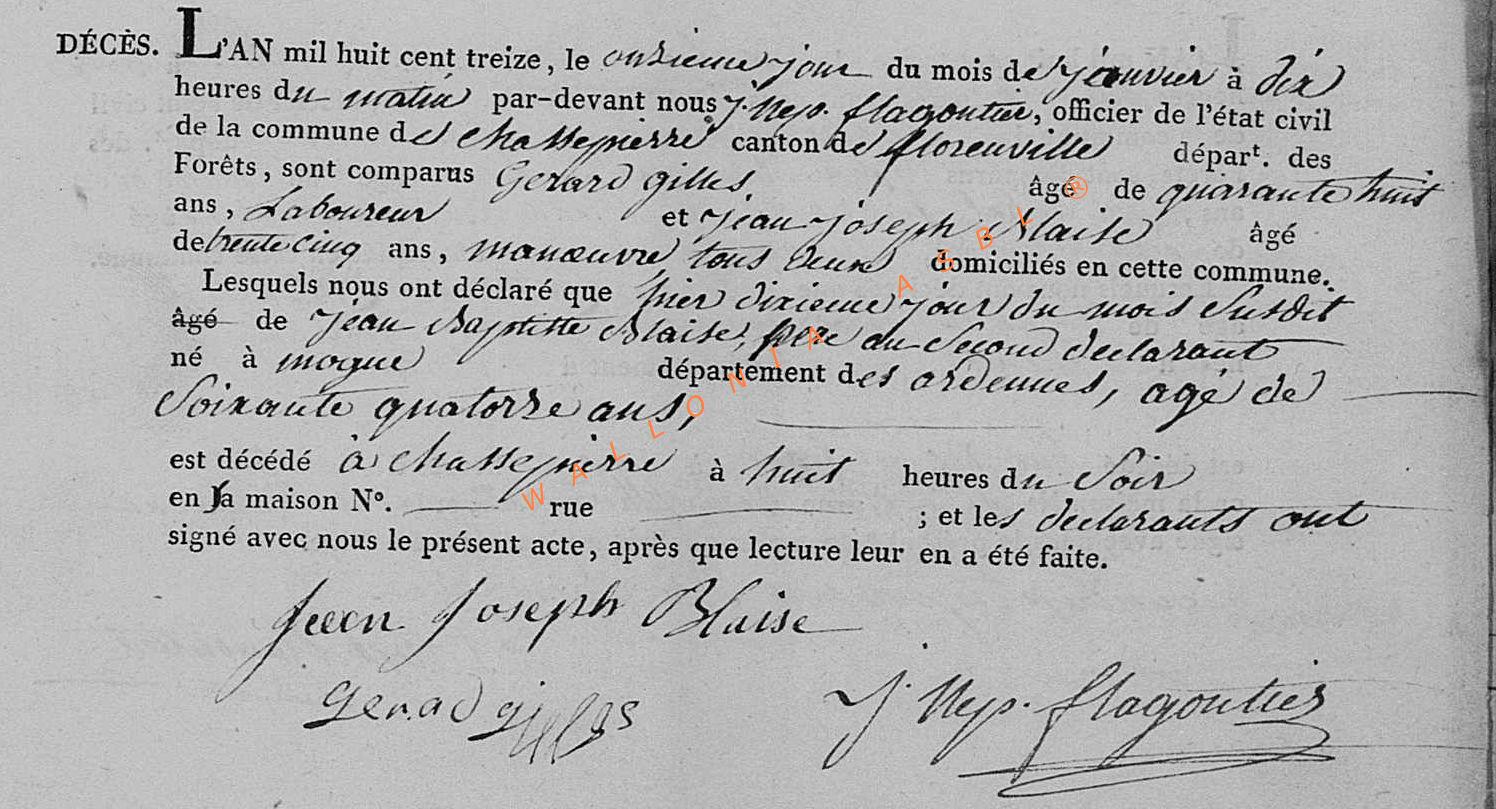 DÉCÈS. L'AN mil huit cent treize, le onzieme jour du mois de janvier à dix
heures du matin par-devant nous J. Nep. flagoutier, officier de l'état civil
de la commune de chassepierre canton de florenville départ. des
Forêts, sont comparus Gerard gilles âgé de quarante huit
ans, Laboureur et jean joseph Blaise âgé
de trente cinq ans, manœuvre, tous deux domiciliés en cette commune.
Lesquels nous ont déclaré que hier dixieme jour du mois susdit
âgé de jean Baptiste Blaise, pere du second declarant
né à mogue département des ardennes, agé de
soixante quatorze ans,
est décédé à chassepierre à huit heures du soir
en sa maison N°. rue ; et les declarants ont
signé avec nous le présent acte, après que lecture leur en a été faite.
Jean Joseph Blaise
gerad gilles J. Nep. flagoutier
WALLONIA ASBL ®